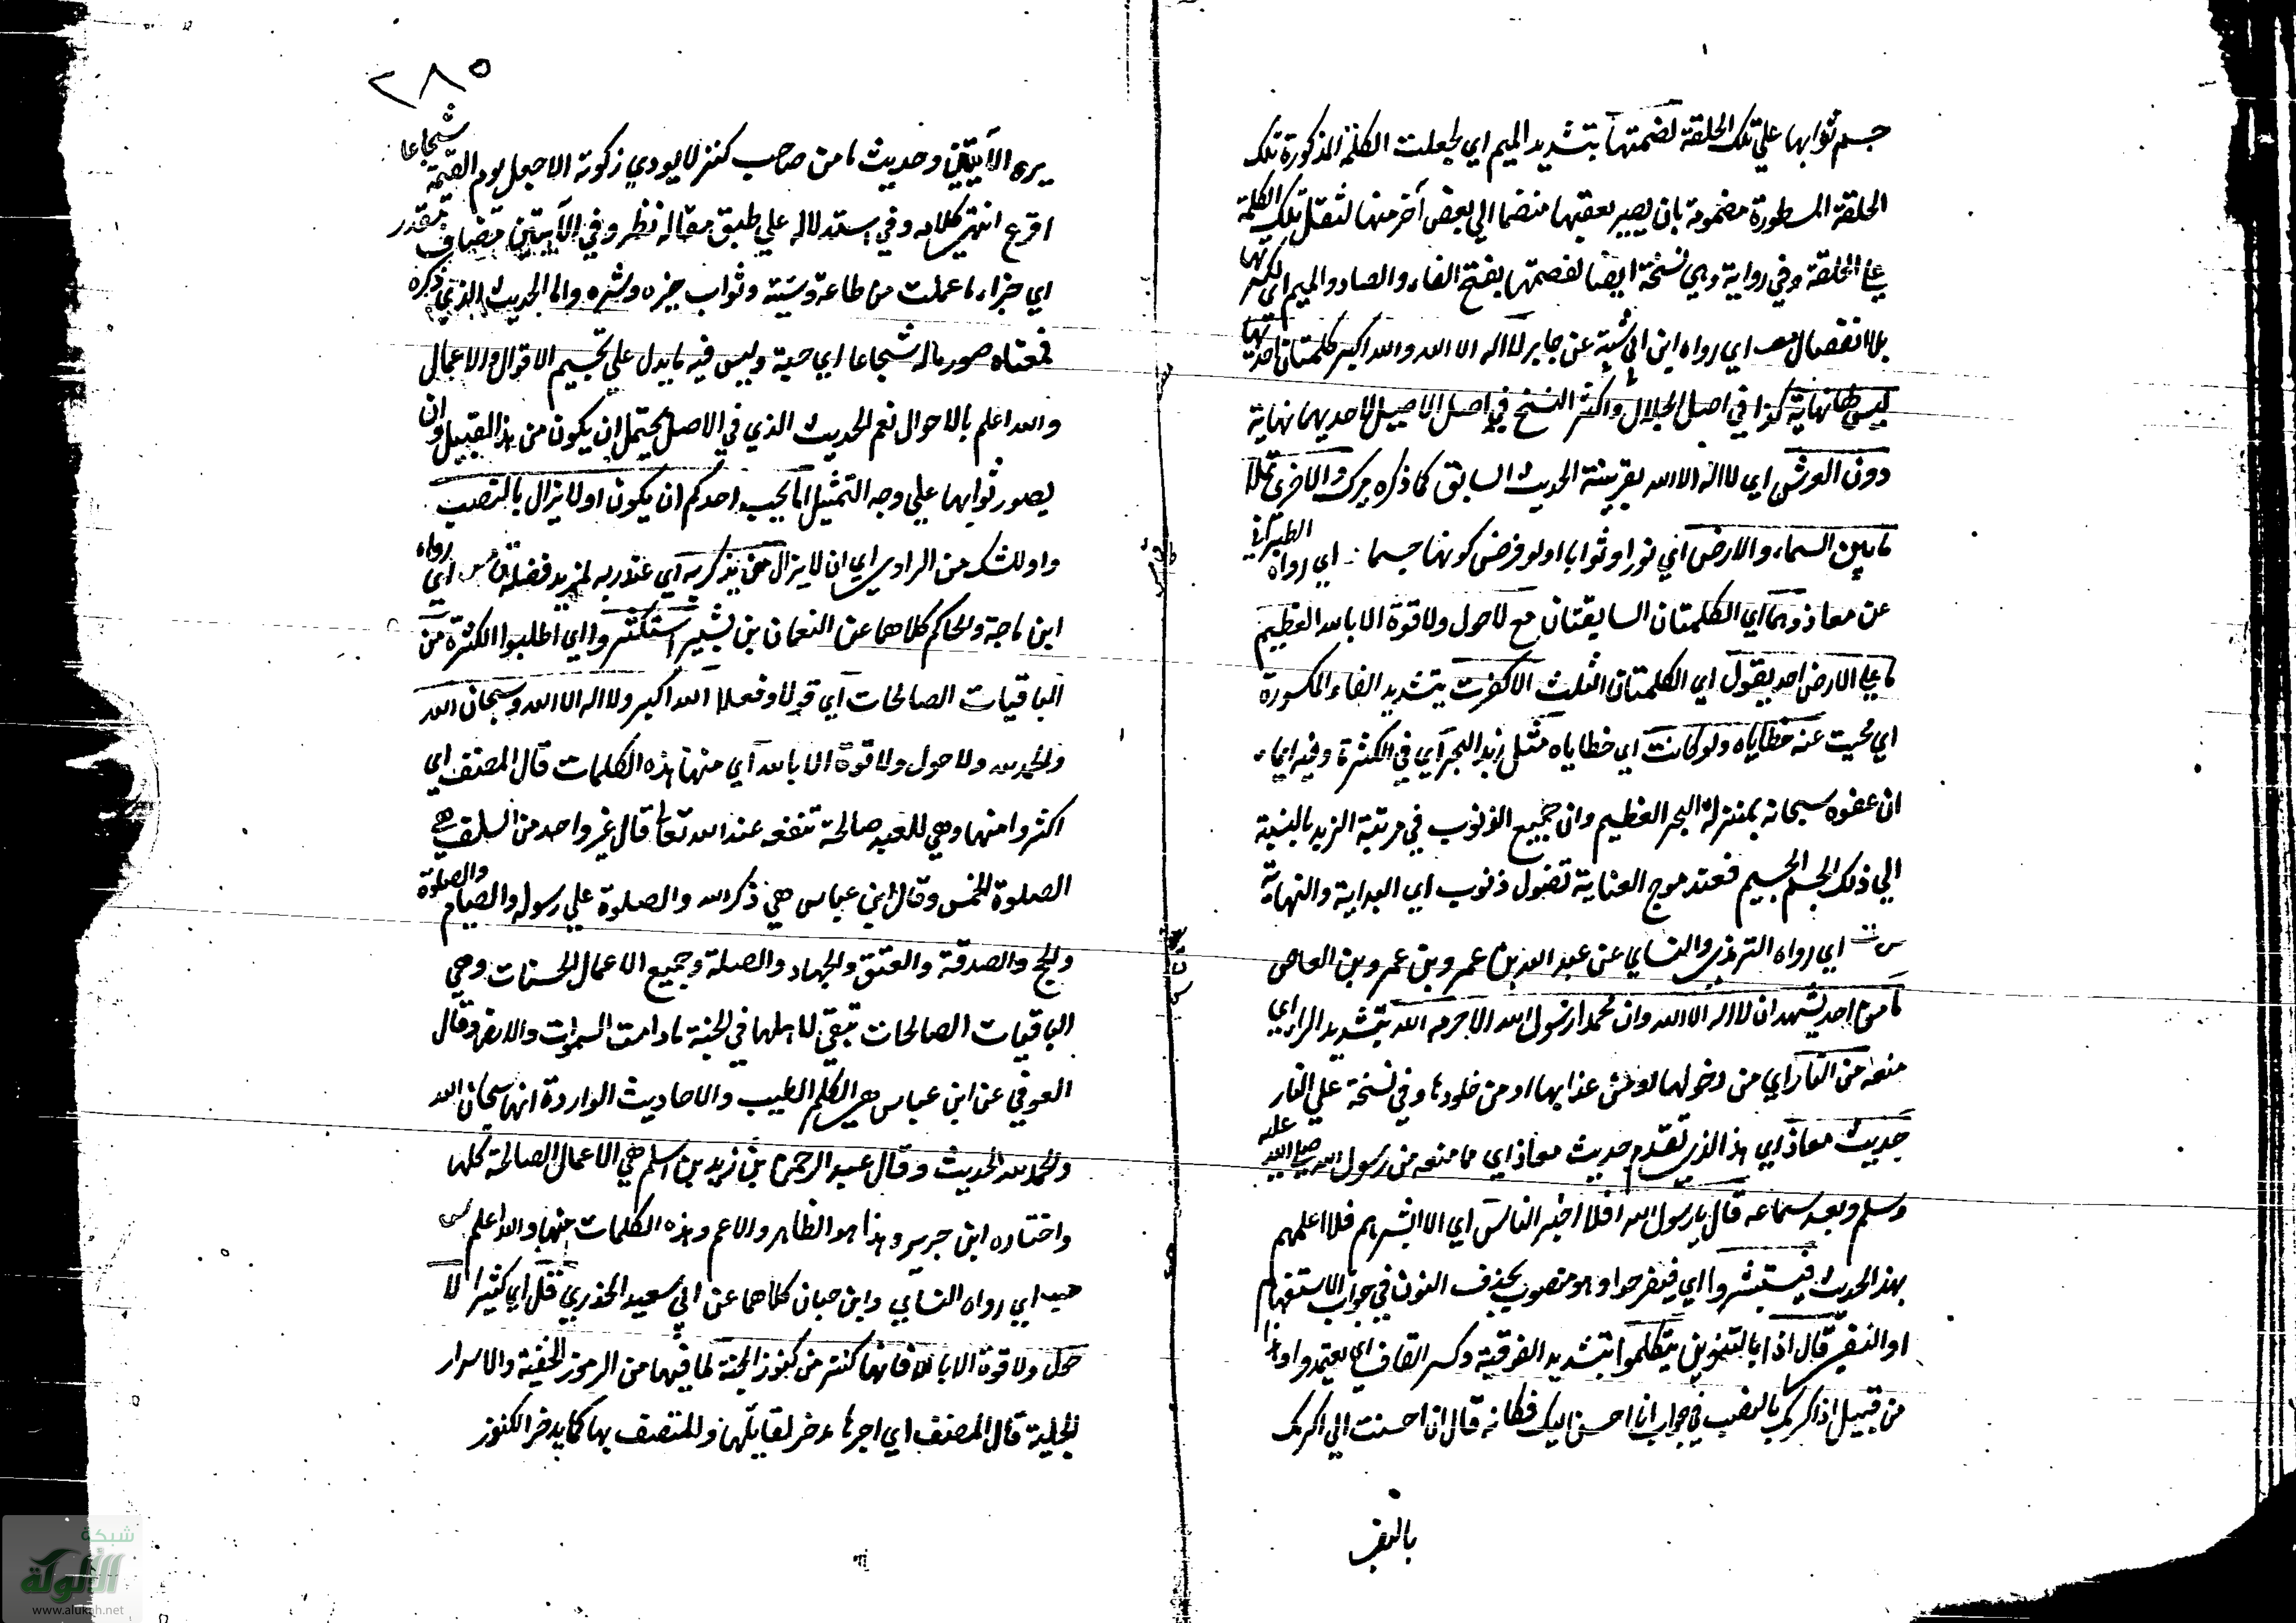 جسم ثوابها علي تلك الحلقة لضمتها بتشديد الميم اي لجعلت الكلمة المذكورة تلك
الحلقة المسطورة مضمومة بان يصير بعقبها منضما الي بعض آخر منها لثقل تلك الكلمة
علي الحلقة وفي رواية وهي نسخة ايضا لفصمتها بفتح الفاء والصاد والميم اي لكسرتها
بلا انفصال مص اي رواه ابن ابي شيبة عن جابر لا اله الا الله والله اكبر كلمتان احديهما
ليس لها نهاية كذا في اصل الجلال واكثر النسخ في اصل الاصيل لاحديهما نهاية
دون العرش اي لا اله الا الله بقرينة الحديث السابق كما ذكره ميرك والاخرى تملأ
ما بين السماء والارض اي نورا وثوابا او لو فرض كونها جسما ط اي رواه الطبراني
عن معاذ وهما اي الكلمتان السابقتان مع لا حول ولا قوة الا بالله العظيم
ما علي الارض احد يقول اي الكلمتان الثلث الا كفرت بتشديد الفاء المكسورة
اي محيت عنه خطاياه ولو كانت اي خطاياه مثل زبد البحر اي في الكثرة وفيه ايماء
ان عفوه سبحانه بمنزلة البحر العظيم وان جميع الذنوب في مرتبة الزبد بالنسبة
الي ذلك الجسم الجسيم فعند موج العناية تضول ذنوب اي البداية والنهاية
ت س اي رواه الترمذي والنساي عن عبد الله بن عمرو بن عمرو بن العاص
ما من احد يشهد ان لا اله الا الله وان محمدا رسول الله الا حرمه الله بتشديد الراء اي
منعه من النار اي من دخولها او من عذابها او من خلودها وفي نسخة علي النار
حديث معاذ اي هذا الذي تقدم حديث معاذ اي مما سمعه من رسول الله صلي الله عليه
وسلم وبعد سماعه قال يا رسول الله افلا اخبر الناس اي الا ابشرهم فلا اعلمهم
بهذا الحديث فيستبشروا اي فيفرحوا وهو منصوب بحذف النون في جواب الاستفهام
او النفي قال اذا بالتنوين يتكلموا بتشديد الفوقية وكسر القاف اي يعتمدوا وهذا
من قبيل اذا اكرمك بالنصب في جواب انا احسن اليك فكانه قال ان احسنت الي اكرمك
بالنصب
٢٨٥
يره الآيتين وحديث ما من صاحب كنز لا يودي زكوته الا جعل يوم القيمة شجاعا
اقرع انتهي كلامه وفي استدلاله علي طبق مقاله نظر وفي الآيتين مضاف مقدر
اي جزاء ما عملت من طاعة وسيئة وثواب خيره وشره واما الحديث الذي ذكره
فمعناه صور ماله شجاعا اي حية وليس فيه ما يدل علي تجسيم الاقوال والاعمال
والله اعلم بالاحوال نعم الحديث الذي في الاصل يحتمل ان يكون من هذا القبيل وان
يصور ثوابها علي وجه التمثيل اما يحب احدكم ان يكون او لا يزال بالنصب
واو للشك من الراوي اي ان لا يزال من يذكر به اي عند ربه لمزيد فضله ق مس اي رواه
ابن ماجة والحاكم كلاهما عن النعمان بن بشير استكثروا اي اطلبوا الكثرة من
الباقيات الصالحات اي قولا وفعلا الله اكبر ولا اله الا الله وسبحان الله
والحمد لله ولا حول ولا قوة الا بالله اي منها هذه الكلمات قال المصنف اي
اكثروا منها وهي للعبد صالحة تنفعه عند الله تعا قال غير واحد من السلف هي
الصلوة الخمس وقال ابن عباس هي ذكر الله والصلوة علي رسوله والصيام والصلوة
والحج والصدقة والعتق والجهاد والصلة وجميع الاعمال الحسنات وهي
الباقيات الصالحات تبقي لاهلها في الجنة ما دامت السموات والارض وقال
العوفي عن ابن عباس هي الكلم الطيب والاحاديث الواردة انها سبحان الله
والحمد لله الحديث وقال عبد الرحمن بن زيد بن اسلم هي الاعمال الصالحة كلها
واختاره ابن جرير وهذا هو الظاهر والاعم وهذه الكلمات منها والله اعلم س
حب اي رواه النساي وابن حبان كلاهما عن ابي سعيد الخدري قل اي كثيرا لا
حول ولا قوة الا بالله فانها كنز من كنوز الجنة لما فيها من الرموز الخفية والاسرار
الجلية قال المصنف اي اجرها مدخر لقايلها والمتصف بها كما يدخر الكنوز
شبكة
الألوكة
www.alukah.net